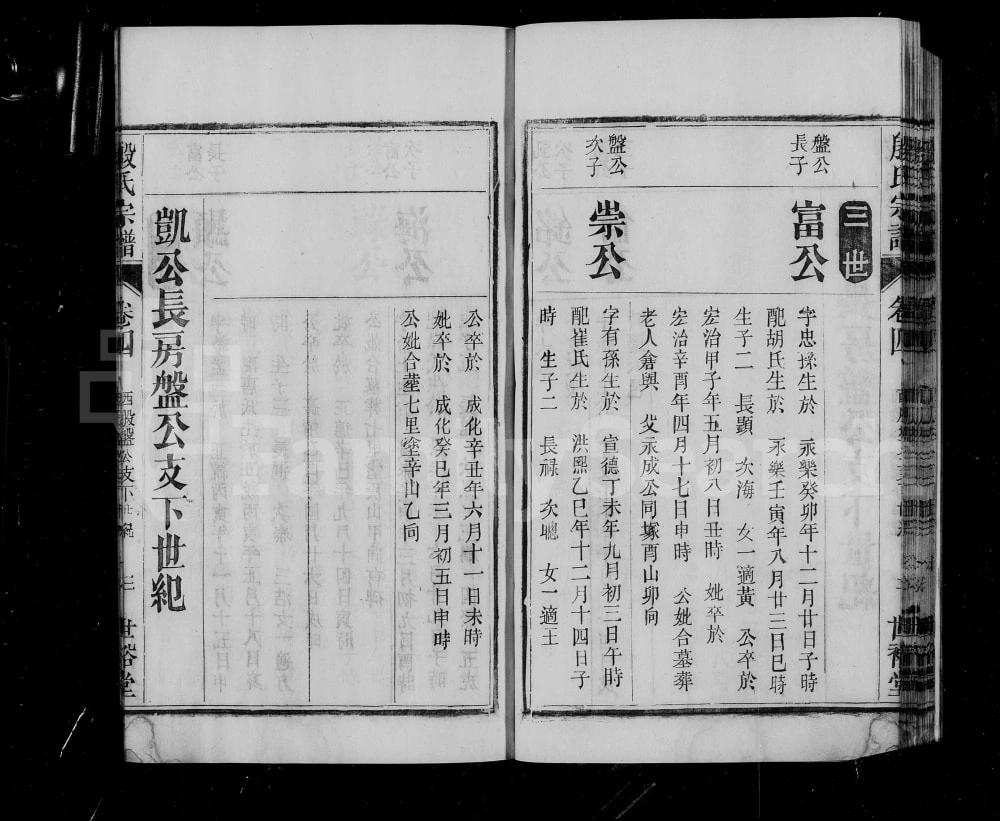 殷氏宗譜
卷四
世裕堂
三世
盤公長子
富公
字忠孫生於　永樂癸卯年十二月廿日子時
配胡氏生於　永樂壬寅年八月廿三日巳時
生子二　長顯　次海　女一適黃　公卒於
宏治甲子年五月初八日丑時　妣卒於
宏治辛酉年四月十七日申時　公妣合墓葬
老人倉與　父永成公同塚酉山卯向
盤公次子
崇公
字有孫生於　宣德丁未年九月初三日午時
配崔氏生於　洪熙乙巳年十二月十四日子
時　生子二　長祿　次聰　女一適王
公卒於　成化辛丑年六月十一日未時
妣卒於　成化癸巳年三月初五日申時
公妣合塟七里塗辛山乙向
凱公長房盤公支下世紀
殷氏宗譜
卷四
西殷盤公支下世紀
三
世裕堂